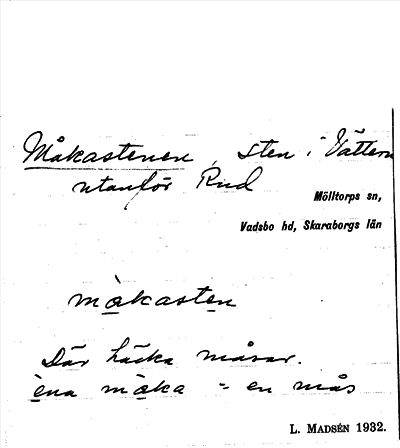 Måkastenen, sten i Vättern
utanför Rud
Mölltorps sn,
Vadsbo hd, Skaraborgs län
màkasten
Där häcka måsar.
èna màka = en mås
L. MADSÉN 1932.